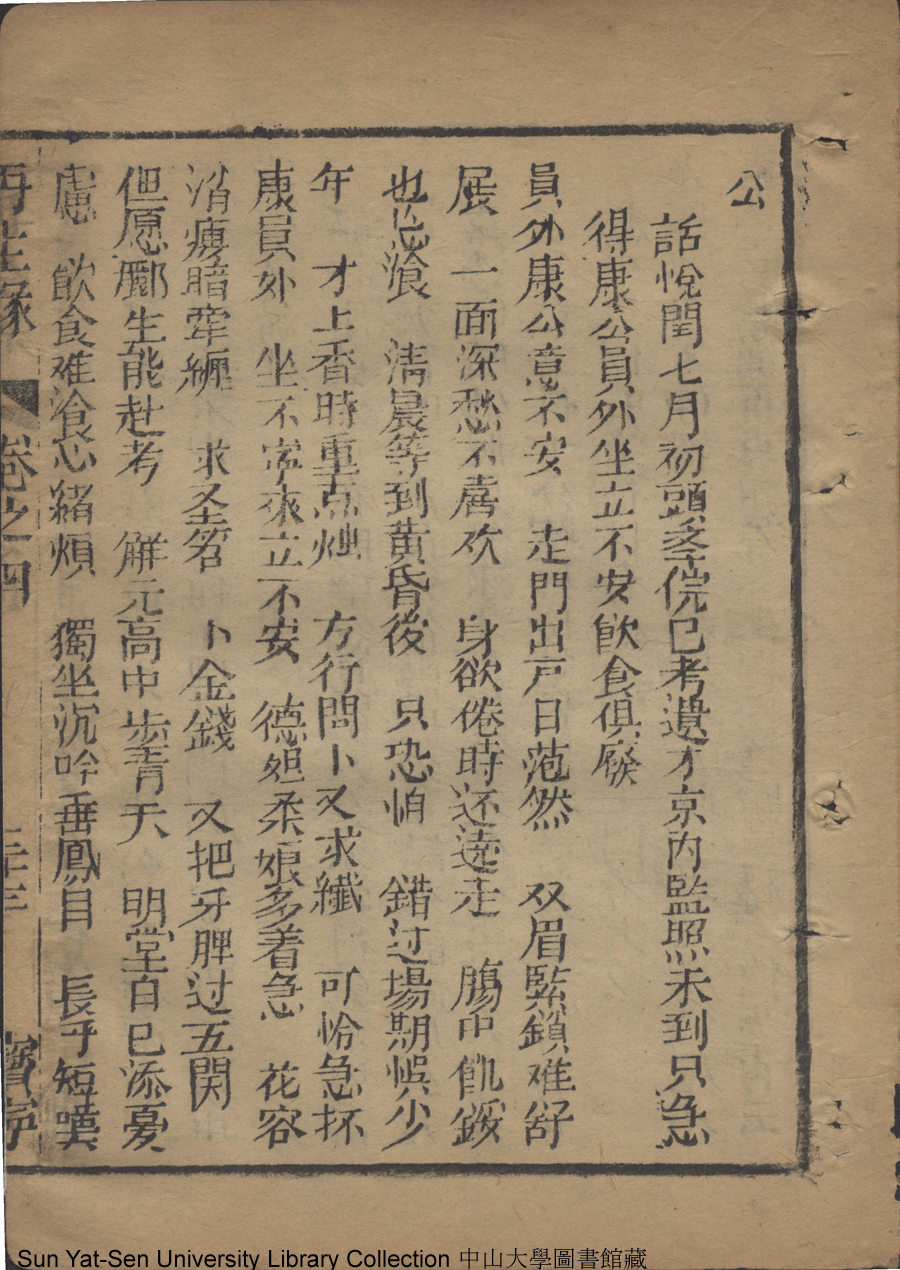 公
話悅閏七月初頭孝院已考遺才京内監照未到只急
得康公員外坐立不安飲食俱廢
員外康公意不安 走門出戸日茫然 双眉緊鎖难舒
展 一面深愁不喜欢 身欲倦時还遶走 膓中飢餒
也忘飡 清晨等到黄昏後 只恐怕 錯过場期悞少
年 才上香時重点烛 方行問卜又求纖 可怜急坏
康員外 坐不寜來立不安 德姐柔娘多着急 花容
消瘦暗牵纏 求圣筶 卜金錢 又把牙牌过五関
但愿酈生能赴考 觧元高中步青天 明堂自已添憂
慮 飲食难飡心緒煩 獨坐沉吟垂鳳目 長乎短嘆
再生緣 卷之四 二十三 寳寧
Sun Yat-Sen University Library Collection 中山大學圖書館藏